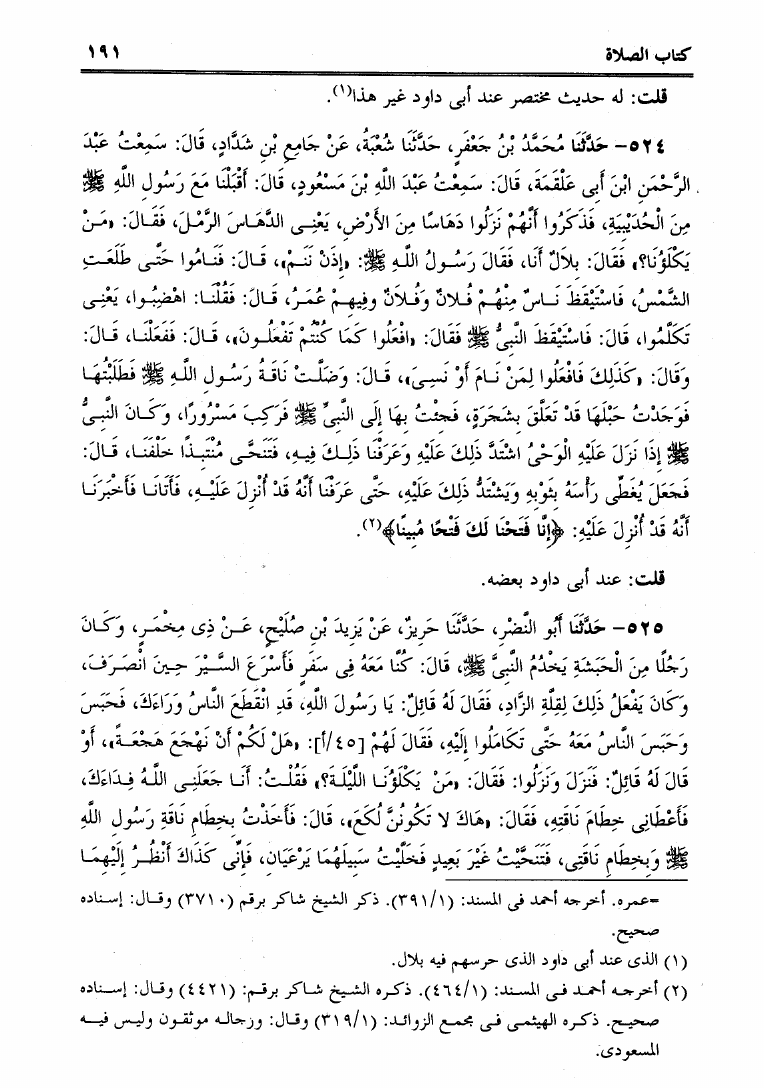 كتاب الصلاة ١٩١
قلت: له حديث مختصر عند أبى داود غير هذا(١).
٥٢٤- حَدَّثَنَا مُحَمَّدُ بْنُ جَعْفَرٍ، حَدَّثَنَا شُعْبَةُ، عَنْ جَامِعِ بْنِ شَدَّادٍ، قَالَ: سَمِعْتُ عَبْدَ
الرَّحْمَنِ ابْنَ أَبِى عَلْقَمَةَ، قَالَ: سَمِعْتُ عَبْدَ اللَّهِ بْنَ مَسْعُودٍ، قَالَ: أَقْبَلْنَا مَعَ رَسُولِ اللَّهِ ﷺ
مِنَ الْحُدَيْبِيَةِ، فَذَكَرُوا أَنَّهُمْ نَزَلُوا دَهَاسًا مِنَ الأَرْضِ، يَعْنِى الدَّهَاسَ الرَّمْلَ، فَقَالَ: «مَنْ
يَكْلَؤُنَا؟» فَقَالَ: بِلاَلٌ أَنَا، فَقَالَ رَسُولُ اللَّهِ ﷺ: «إِذَنْ نَنَمْ»، قَالَ: فَنَامُوا حَتَّى طَلَعَتِ
الشَّمْسُ، فَاسْتَيْقَظَ نَاسٌ مِنْهُمْ فُلاَنٌ وَفُلاَنٌ وَفِيهِمْ عُمَرُ، قَالَ: فَقُلْنَا: اهْضِبُوا، يَعْنِى
تَكَلَّمُوا، قَالَ: فَاسْتَيْقَظَ النَّبِىُّ ﷺ فَقَالَ: «افْعَلُوا كَمَا كُنْتُمْ تَفْعَلُونَ»، قَالَ: فَفَعَلْنَا، قَالَ:
وَقَالَ: «كَذَلِكَ فَافْعَلُوا لِمَنْ نَامَ أَوْ نَسِىَ»، قَالَ: وَضَلَّتْ نَاقَةُ رَسُولِ اللَّهِ ﷺ فَطَلَبْتُهَا
فَوَجَدْتُ حَبْلَهَا قَدْ تَعَلَّقَ بِشَجَرَةٍ، فَجِئْتُ بِهَا إِلَى النَّبِىِّ ﷺ فَرَكِبَ مَسْرُورًا، وَكَانَ النَّبِىُّ
ﷺ إِذَا نَزَلَ عَلَيْهِ الْوَحْىُ اشْتَدَّ ذَلِكَ عَلَيْهِ وَعَرَفْنَا ذَلِكَ فِيهِ، فَتَنَحَّى مُنْتَبِذًا خَلْفَنَا، قَالَ:
فَجَعَلَ يُغَطِّى رَأْسَهُ بِثَوْبِهِ وَيَشْتَدُّ ذَلِكَ عَلَيْهِ، حَتَّى عَرَفْنَا أَنَّهُ قَدْ أُنْزِلَ عَلَيْهِ، فَأَتَانَا فَأَخْبَرَنَا
أَنَّهُ قَدْ أُنْزِلَ عَلَيْهِ: ﴿إِنَّا فَتَحْنَا لَكَ فَتْحًا مُبِينًا﴾(٢).
قلت: عند أبى داود بعضه.
٥٢٥- حَدَّثَنَا أَبُو النَّضْرِ، حَدَّثَنَا حَرِيزٌ، عَنْ يَزِيدَ بْنِ صُلَيْحٍ، عَنْ ذِى مِخْمَرٍ، وَكَانَ
رَجُلًا مِنَ الْحَبَشَةِ يَخْدُمُ النَّبِىَّ ﷺ، قَالَ: كُنَّا مَعَهُ فِى سَفَرٍ فَأَسْرَعَ السَّيْرَ حِينَ انْصَرَفَ،
وَكَانَ يَفْعَلُ ذَلِكَ لِقِلَّةِ الزَّادِ، فَقَالَ لَهُ قَائِلٌ: يَا رَسُولَ اللَّهِ، قَدِ انْقَطَعَ النَّاسُ وَرَاءَكَ، فَحَبَسَ
وَحَبَسَ النَّاسُ مَعَهُ حَتَّى تَكَامَلُوا إِلَيْهِ، فَقَالَ لَهُمْ [٤٥/أ]: «هَلْ لَكُمْ أَنْ نَهْجَعَ هَجْعَةً»، أَوْ
قَالَ لَهُ قَائِلٌ: فَنَزَلَ وَنَزَلُوا: فَقَالَ: «مَنْ يَكْلَؤُنَا اللَّيْلَةَ؟» فَقُلْتُ: أَنَا جَعَلَنِى اللَّهُ فِدَاءَكَ،
فَأَعْطَانِى خِطَامَ نَاقَتِهِ، فَقَالَ: «هَاكَ لاَ تَكُونُنَّ لُكَعَ»، قَالَ: فَأَخَذْتُ بِخِطَامِ نَاقَةِ رَسُولِ اللَّهِ
ﷺ وَبِخِطَامِ نَاقَتِى، فَتَنَحَّيْتُ غَيْرَ بَعِيدٍ فَخَلَّيْتُ سَبِيلَهُمَا يَرْعَيَانِ، فَإِنِّى كَذَاكَ أَنْظُرُ إِلَيْهِمَا
=عمره. أخرجه أحمد فى المسند: (٣٩١/١). ذكر الشيخ شاكر برقم (٣٧١٠) وقال: إسناده
صحيح.
(١) الذى عند أبى داود الذى حرسهم فيه بلال.
(٢) أخرجه أحمد فى المسند: (٤٦٤/١). ذكره الشيخ شاكر برقم: (٤٤٢١) وقال: إسناده
صحيح. ذكره الهيثمى فى مجمع الزوائد: (٣١٩/١) وقال: ورجاله موثقون وليس فيه
المسعودى.